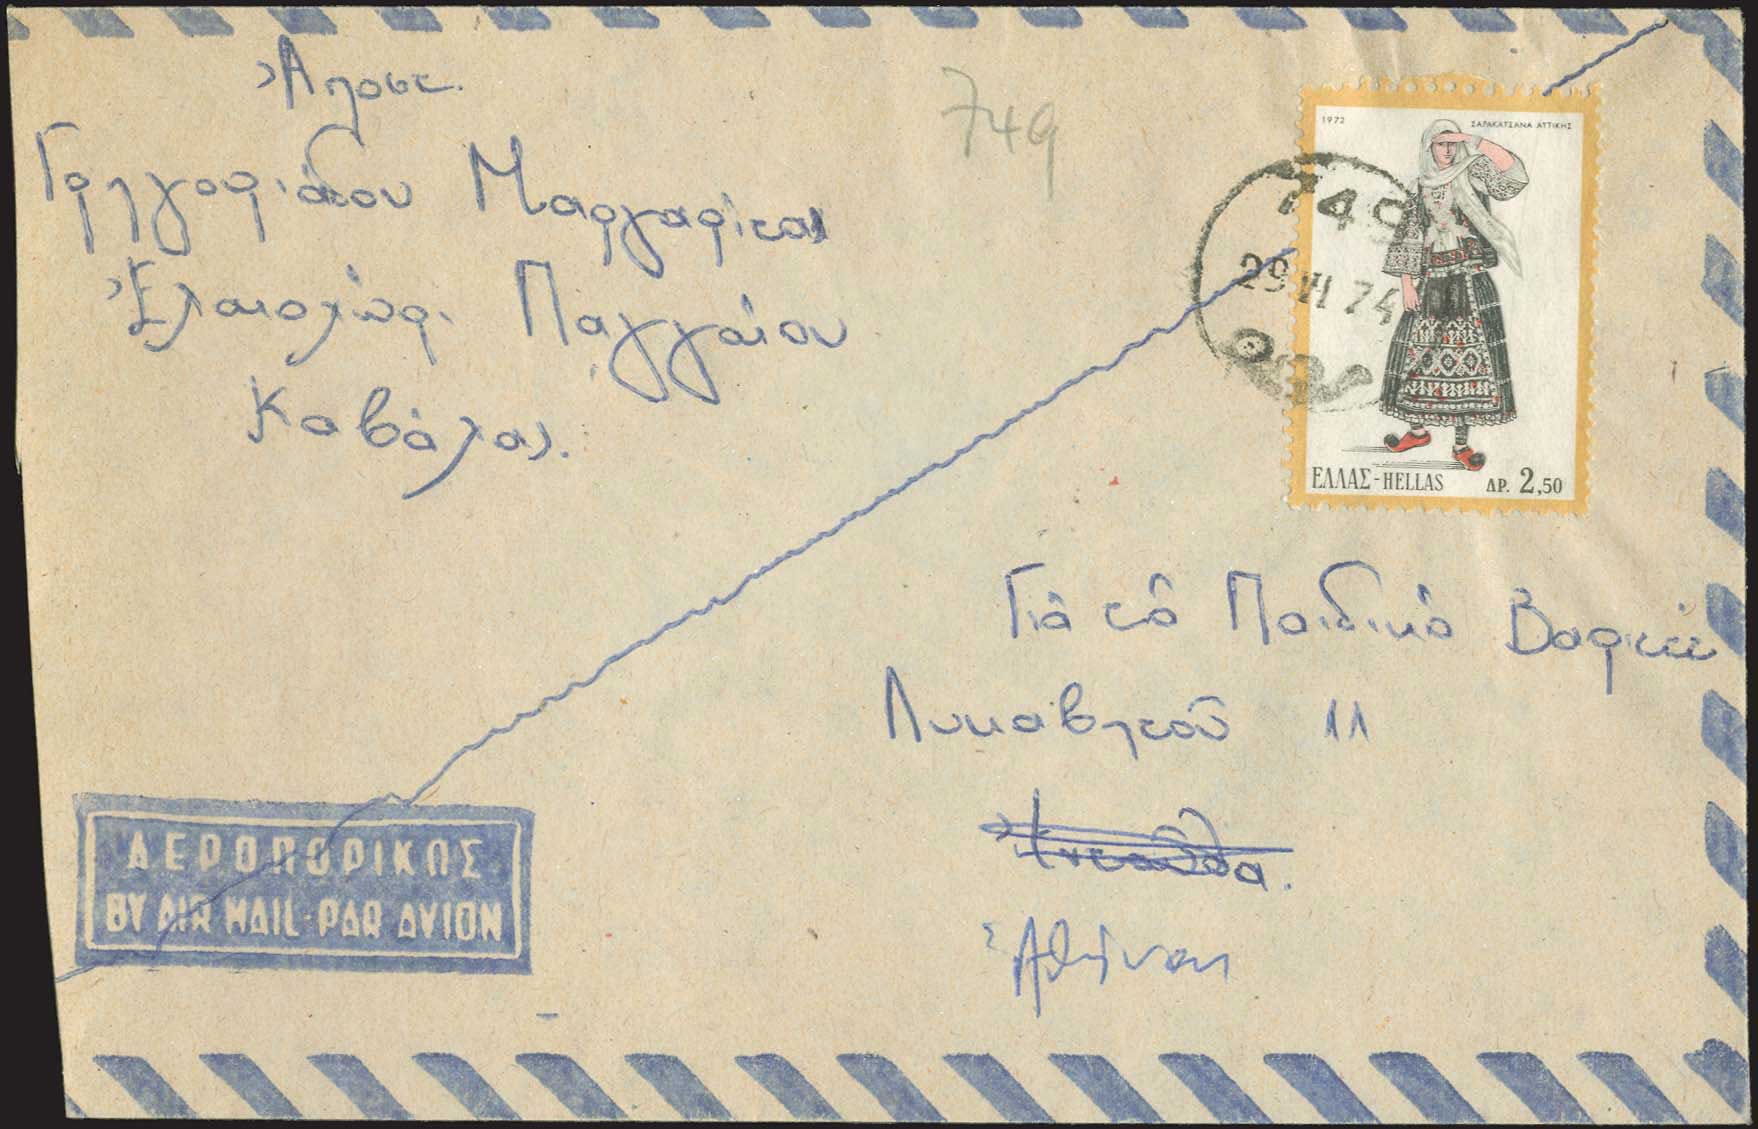 Ἀποστ.
Γρηγοριάδου Μαργαρίτα
Ἐλαιοχώρι Παγγαίου
Καβάλας.
749
1972
ΣΑΡΑΚΑΤΣΑΝΑ ΑΤΤΙΚΗΣ
749
29 VI 74
ΕΛΛΑΣ-HELLAS ΔΡ. 2,50
Γιὰ τὸ Παιδικὸ
Λυκαβητοῦ 11
Ἐνταῦθα.
Ἀθήναι
ΑΕΡΟΠΟΡΙΚΩΣ
BY AIR MAIL-PAR AVION